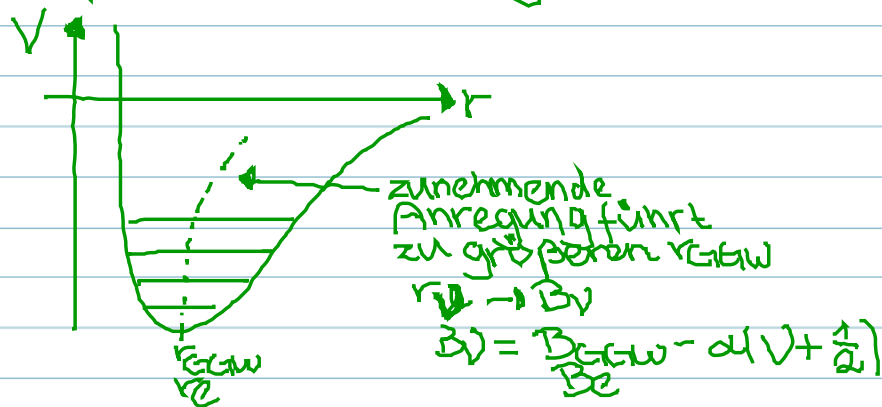 V
r
zunehmende
Anregung führt
zu größeren rGGW
rv → Bv
Bv = BGGW - α(v + 1/2)
Be
rGGW
re